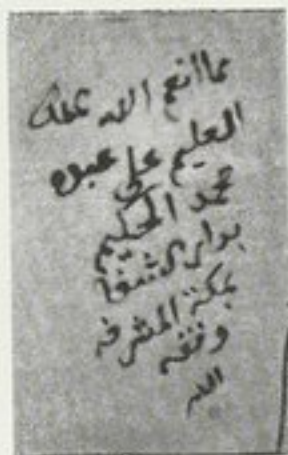 مما أنعم الله بملك
العليم على عبده
محمد الحكيم
بدار الشفا
بمكة المشرفه
وفقه
الله